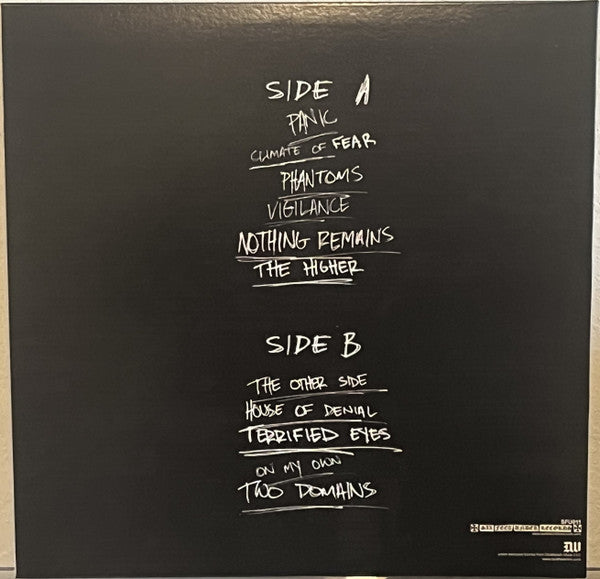 SIDE A
PANIC
CLIMATE OF FEAR
PHANTOMS
VIGILANCE
NOTHING REMAINS
THE HIGHER
SIDE B
THE OTHER SIDE
HOUSE OF DENIAL
TERRIFIED EYES
ON MY OWN
TWO DOMAINS
SFU011
SIX FEET UNDER RECORDS